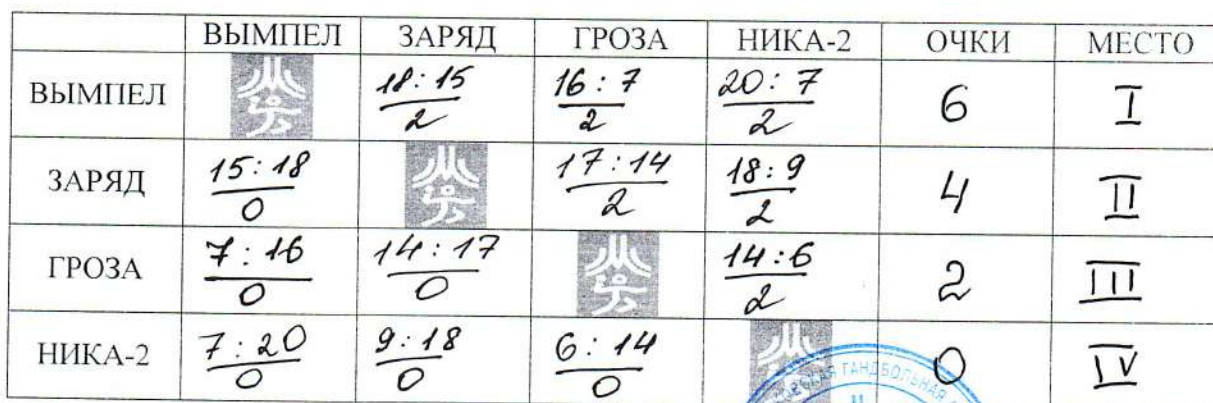 ВЫМПЕЛ ЗАРЯД ГРОЗА НИКА-2 ОЧКИ МЕСТО
ВЫМПЕЛ 18:15 16:7 20:7 6 I
2 2 2
ЗАРЯД 15:18 17:14 18:9 4 II
0 2 2
ГРОЗА 7:16 14:17 14:6 2 III
0 0 2
НИКА-2 7:20 9:18 6:14 0 IV
0 0 0
ГАНДБОЛЬНАЯ